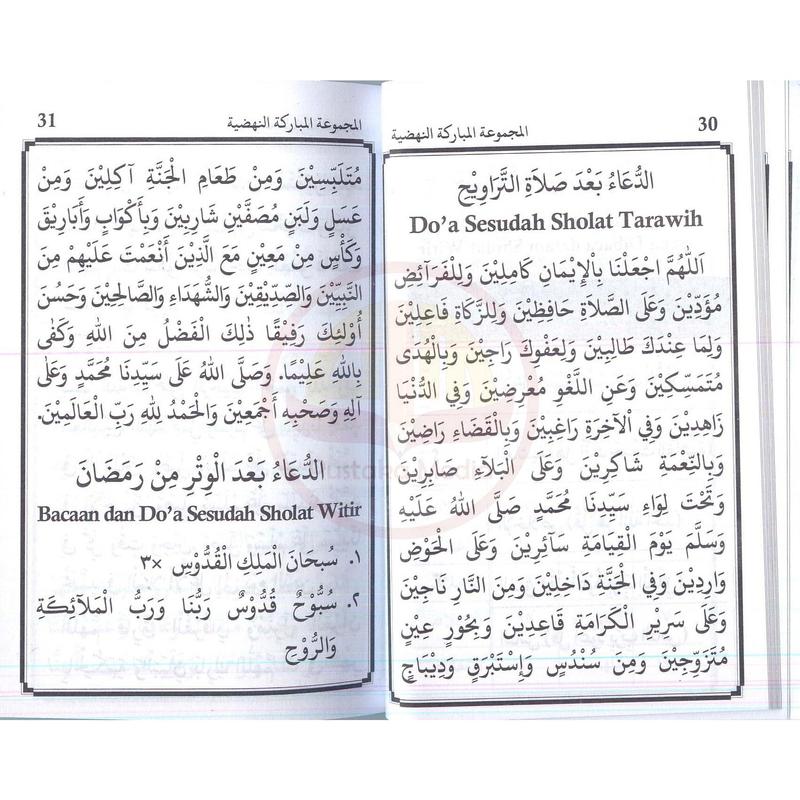 30
المجموعة المباركة النهضية
الدُّعَاءُ بَعْدَ صَلَاةِ التَّرَاوِيْحِ
Do'a Sesudah Sholat Tarawih
اَللّٰهُمَّ اجْعَلْنَا بِالْإِيْمَانِ كَامِلِيْنَ وَلِلْفَرَآئِضِ
مُؤَدِّيْنَ وَعَلَى الصَّلَاةِ حَافِظِيْنَ وَلِلزَّكَاةِ فَاعِلِيْنَ
وَلِمَا عِنْدَكَ طَالِبِيْنَ وَلِعَفْوِكَ رَاجِيْنَ وَبِالْهُدَى
مُتَمَسِّكِيْنَ وَعَنِ اللَّغْوِ مُعْرِضِيْنَ وَفِي الدُّنْيَا
زَاهِدِيْنَ وَفِي الْآخِرَةِ رَاغِبِيْنَ وَبِالْقَضَاءِ رَاضِيْنَ
وَبِالنِّعْمَةِ شَاكِرِيْنَ وَعَلَى الْبَلَآءِ صَابِرِيْنَ
وَتَحْتَ لِوَاءِ سَيِّدِنَا مُحَمَّدٍ صَلَّى اللهُ عَلَيْهِ
وَسَلَّمَ يَوْمَ الْقِيَامَةِ سَآئِرِيْنَ وَعَلَى الْحَوْضِ
وَارِدِيْنَ وَفِي الْجَنَّةِ دَاخِلِيْنَ وَمِنَ النَّارِ نَاجِيْنَ
وَعَلَى سَرِيْرِ الْكَرَامَةِ قَاعِدِيْنَ وَبِحُوْرٍ عِيْنٍ
مُتَزَوِّجِيْنَ وَمِنَ سُنْدُسٍ وَاِسْتَبْرَقٍ وَدِيْبَاجٍ
31
المجموعة المباركة النهضية
مُتَلَبِّسِيْنَ وَمِنْ طَعَامِ الْجَنَّةِ آكِلِيْنَ وَمِنْ
عَسَلٍ وَلَبَنٍ مُصَفَّيْنِ شَارِبِيْنَ وَبِأَكْوَابٍ وَأَبَارِيْقَ
وَكَأْسٍ مِنْ مَعِيْنٍ مَعَ الَّذِيْنَ أَنْعَمْتَ عَلَيْهِمْ مِنَ
النَّبِيِّيْنَ وَالصِّدِّيْقِيْنَ وَالشُّهَدَاءِ وَالصَّالِحِيْنَ وَحَسُنَ
أُوْلٰئِكَ رَفِيْقًا ذٰلِكَ الْفَضْلُ مِنَ اللهِ وَكَفٰى
بِاللهِ عَلِيْمًا. وَصَلَّى اللهُ عَلَى سَيِّدِنَا مُحَمَّدٍ وَعَلَى
آلِهِ وَصَحْبِهِ أَجْمَعِيْنَ وَالْحَمْدُ لِلهِ رَبِّ الْعَالَمِيْنَ.
الدُّعَاءُ بَعْدَ الْوِتْرِ مِنْ رَمَضَانَ
Bacaan dan Do'a Sesudah Sholat Witir
١. سُبْحَانَ الْمَلِكِ الْقُدُّوْسِ ×٣
٢. سُبُّوْحٌ قُدُّوْسٌ رَبُّنَا وَرَبُّ الْمَلَآئِكَةِ
وَالرُّوْحِ